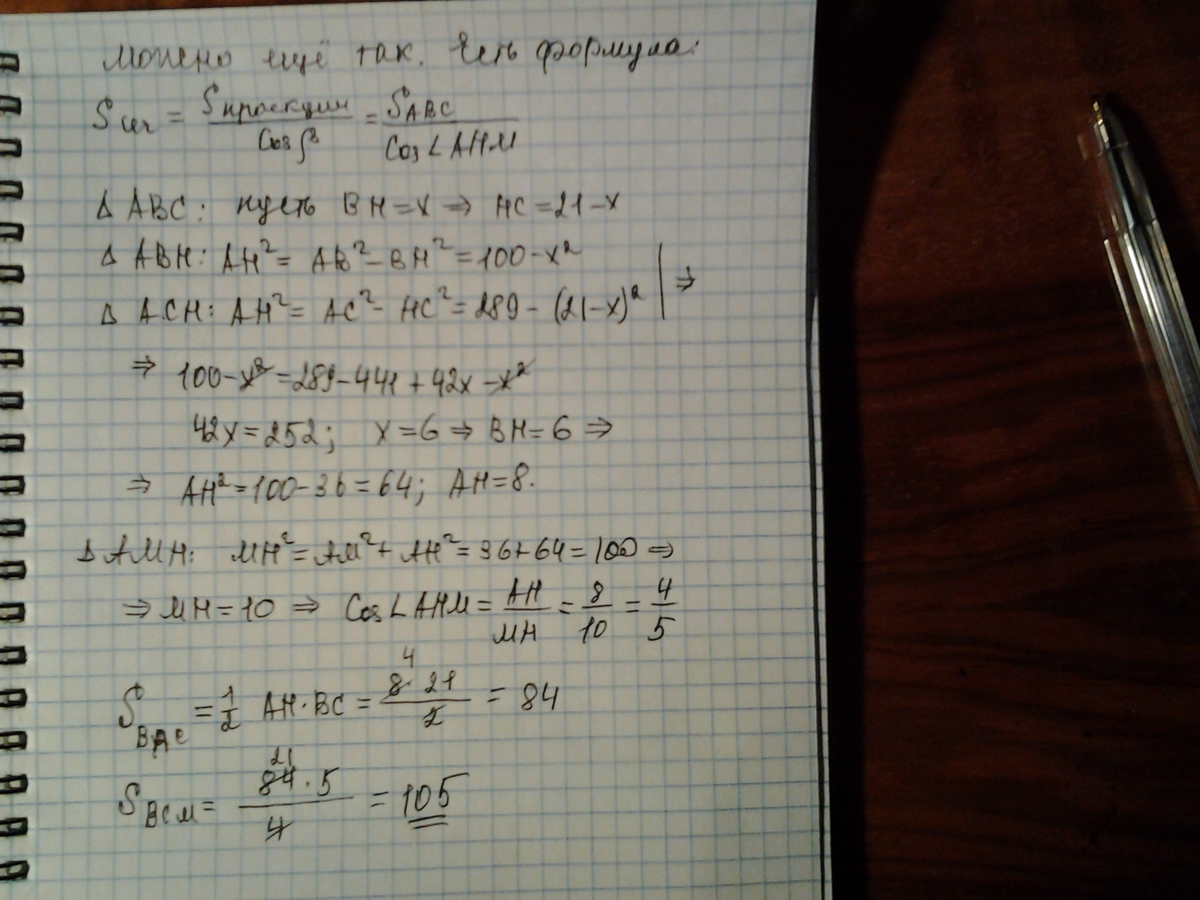 можно ещё так. Есть формула:
Sсеч = Sпроекции/Cos β = SABC/Cos∠AHM
Δ ABC: пусть BH=x ⇒ HC=21-x
Δ ABH: AH²= AB²-BH²=100-x²
Δ ACH: AH²= AC²- HC²=289-(21-x)² | ⇒
⇒ 100-x²=289-441+42x-x²
42x=252; x=6 ⇒ BH=6 ⇒
⇒ AH²=100-36=64; AH=8.
Δ AMH: MH²=AM²+AH²=36+64=100 ⇒
⇒ MH=10 ⇒ Cos∠AHM= AH/MH = 8/10 = 4/5
4
SBAC = 1/2 AH·BC= 8·21/2 = 84
21
SBCM= 84·5/4 = 105